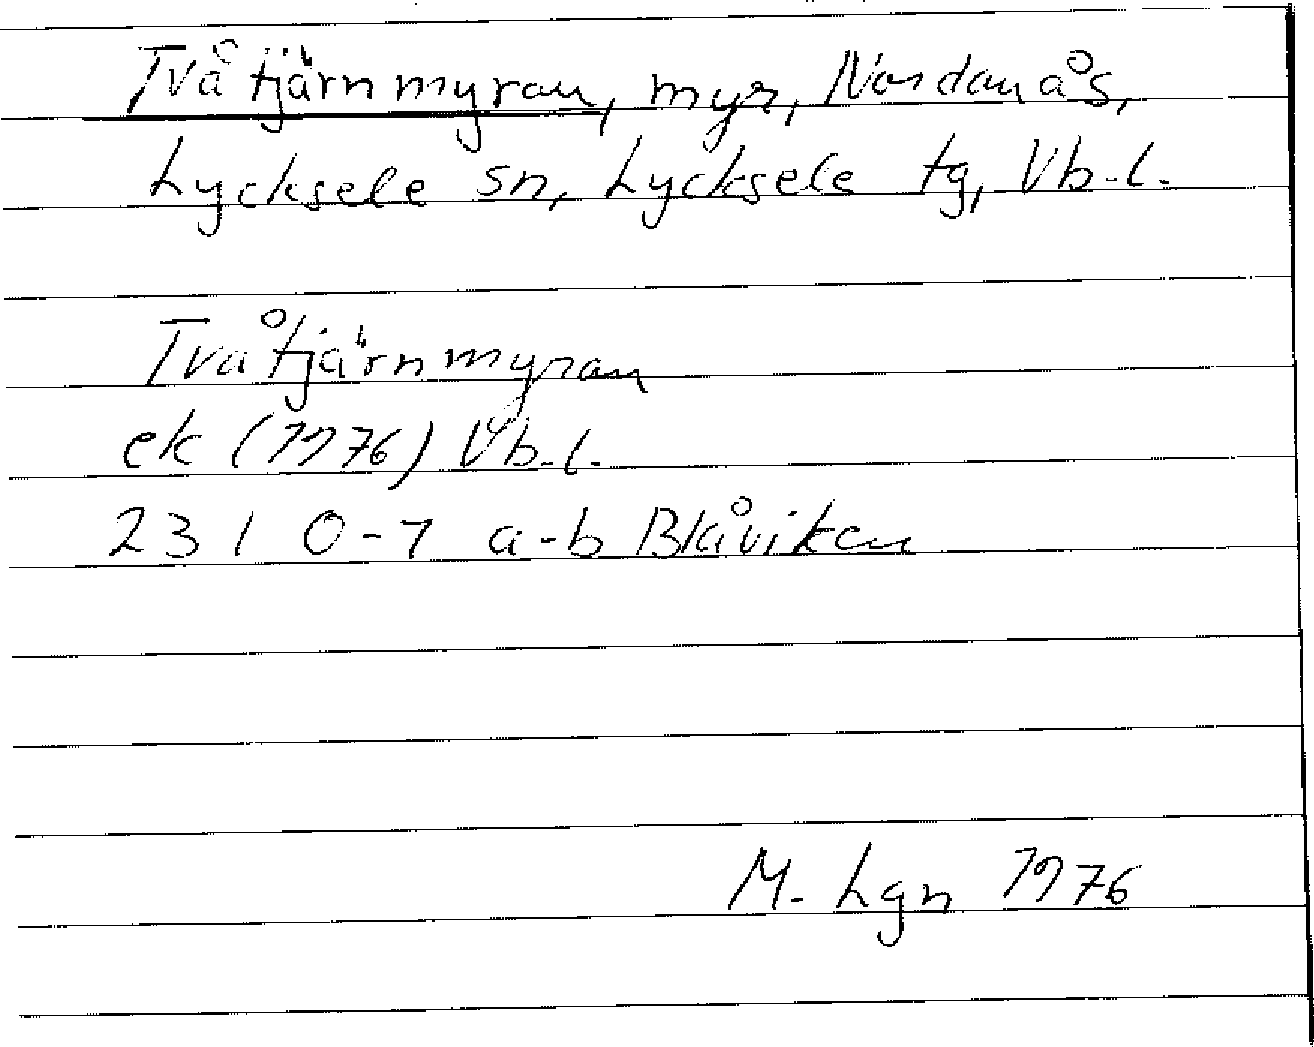 Tvåtjärnmyran, myr, Nordanås,
Lycksele sn, Lycksele tg, Vb.l.
Tvåtjärnmyran
ek (1976) Vb.l.
23 I 0-1 a-b Blåviken
M. Lgn 1976